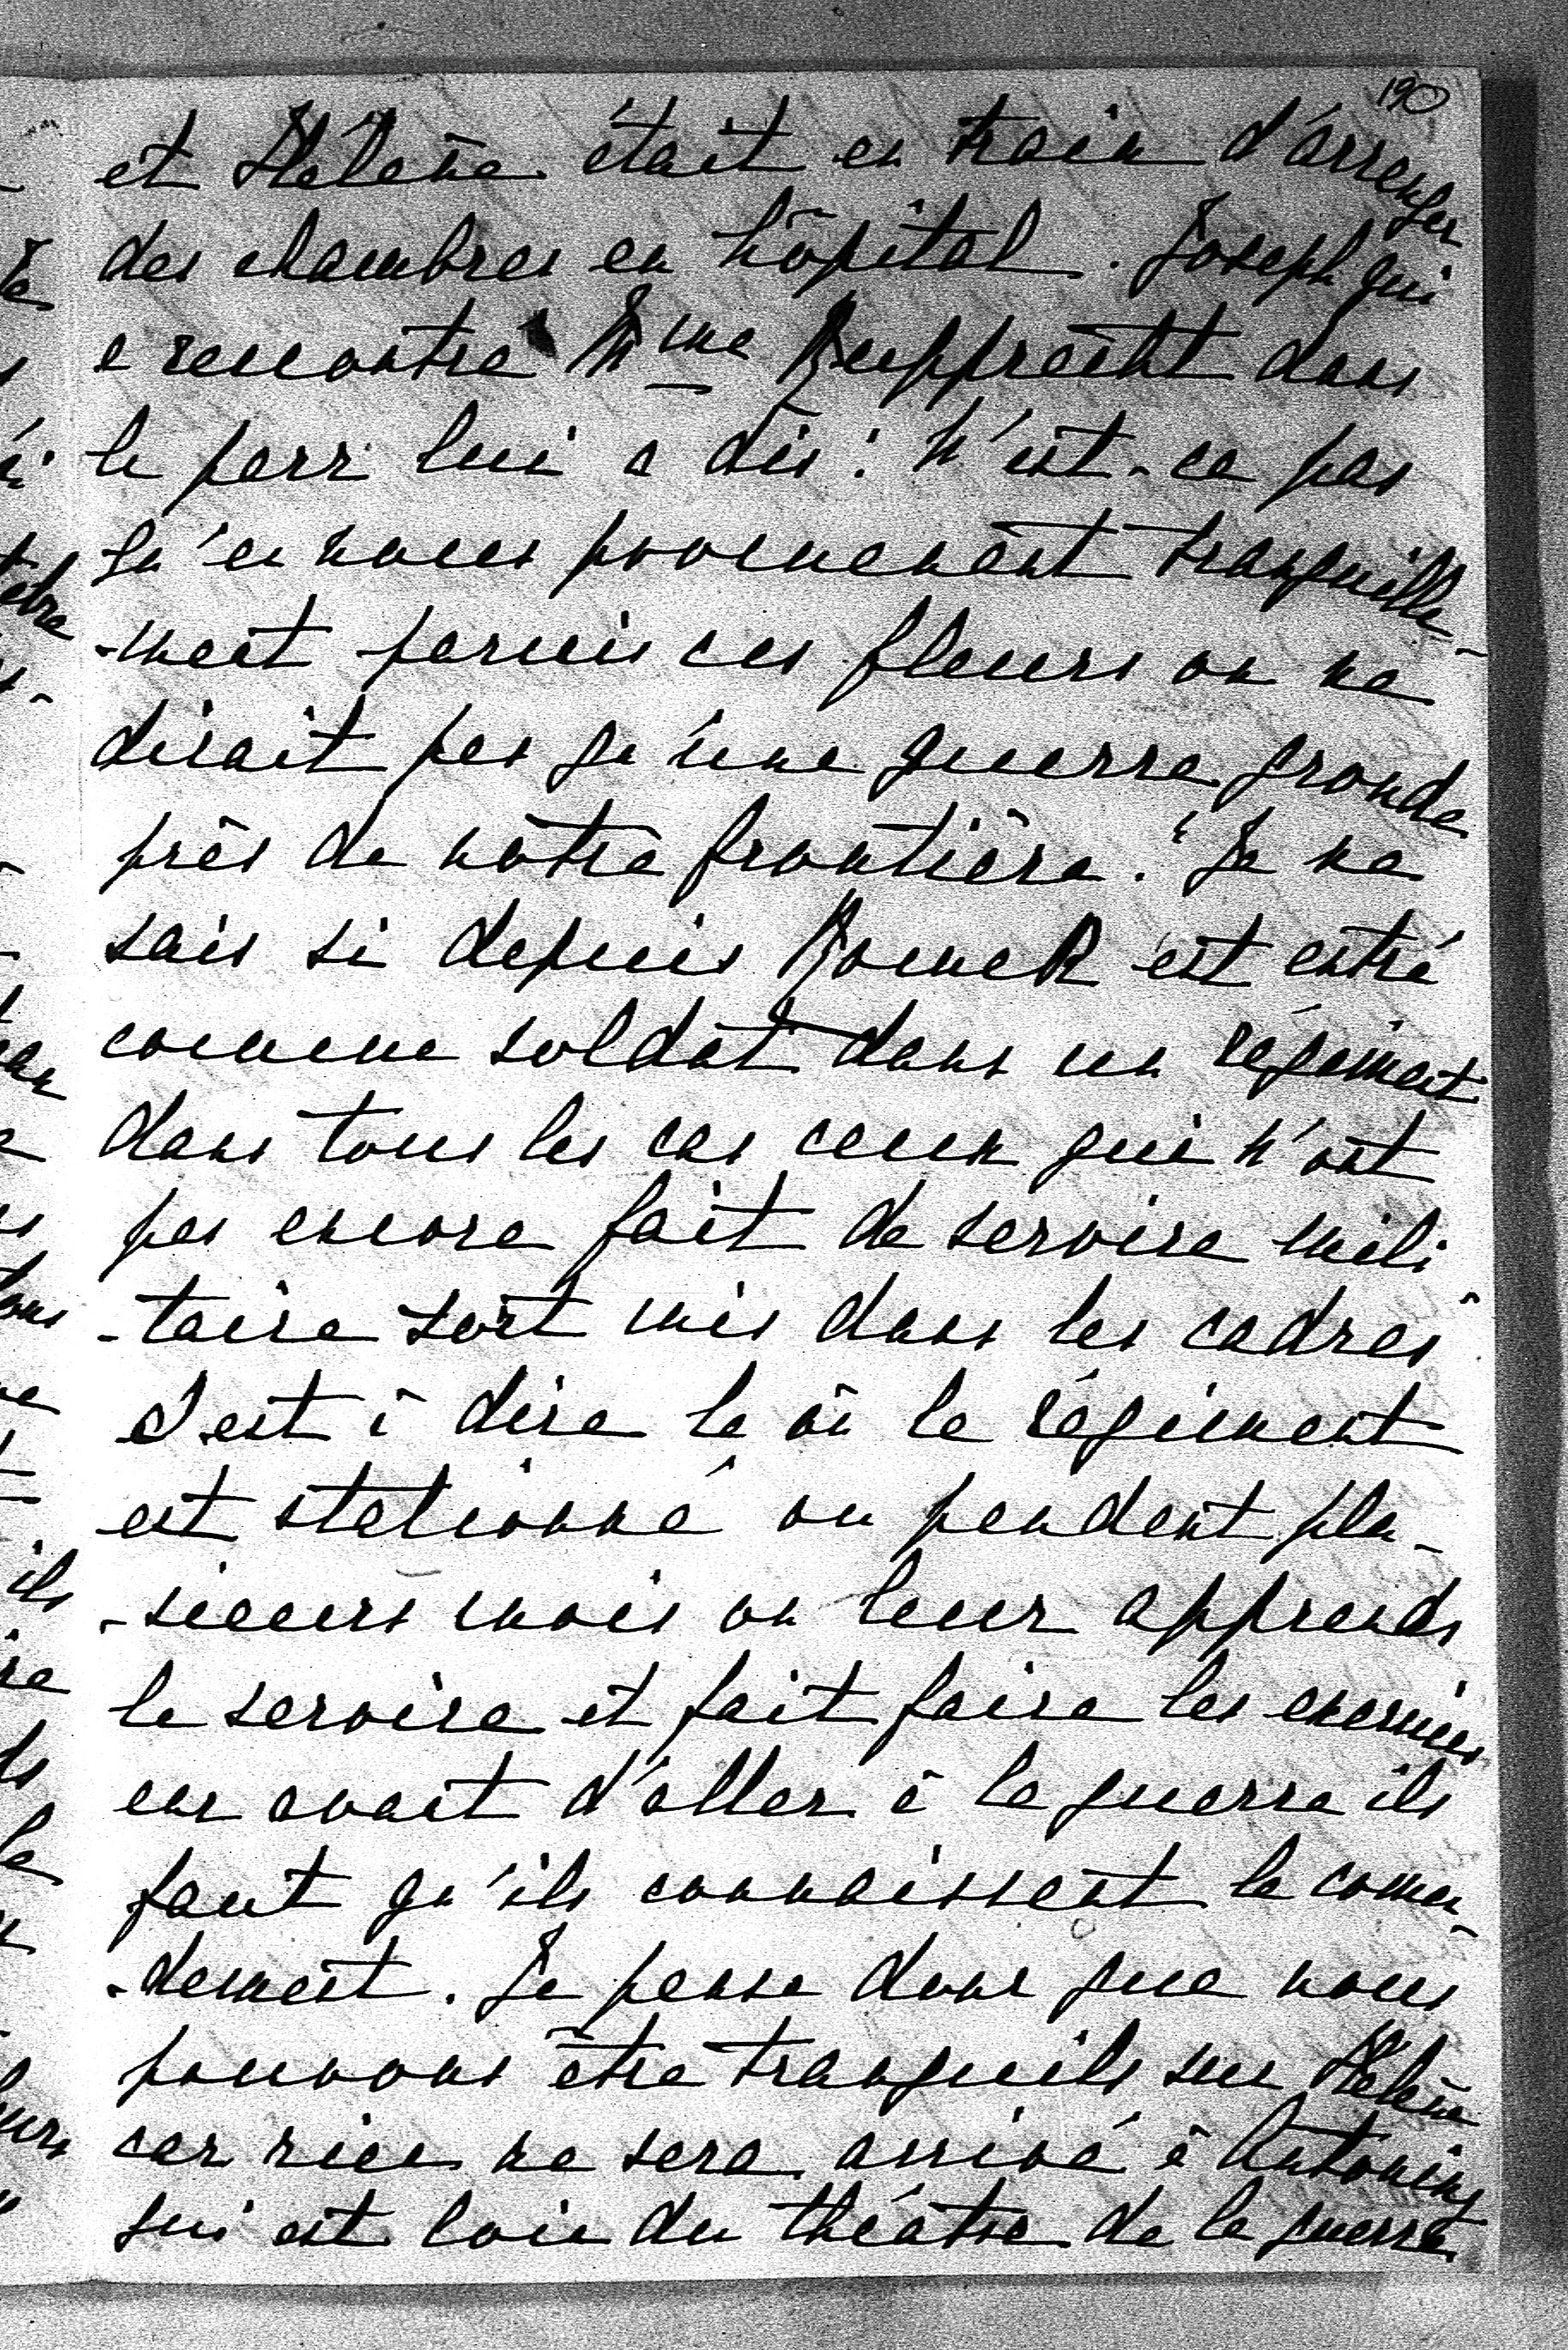 190
et Hélène était en train d'arrenger
des chambres en hôpital. Joseph qui
a rencontré Mme Rupprecht dans
le parc lui a dis: N'est-ce pas
qu'en nous promenant tranquille-
-ment parmis ces fleurs on ne
dirait pas qu'une guerre gronde
près de nôtre frontière." Je ne
sais si depuis Romek est entré
comme soldat dans un régiment
dans tous les cas ceux qui n'ont
pas encore fait de service mili
-taire sont mis dans les cadres
c'est à dire là où le régiment
est stationné ou pendant plu-
-sieurs mois on leur apprends
le service et fait faire les exercices
car avant d'aller à la guerre ils
faut qu'ils connaissent le coman-
-dement. Je pense donc que nous
pouvons être tranquils sur Hélène
car rien ne sera arrivé à Antoniny
qui est loin du théâtre de la guerre